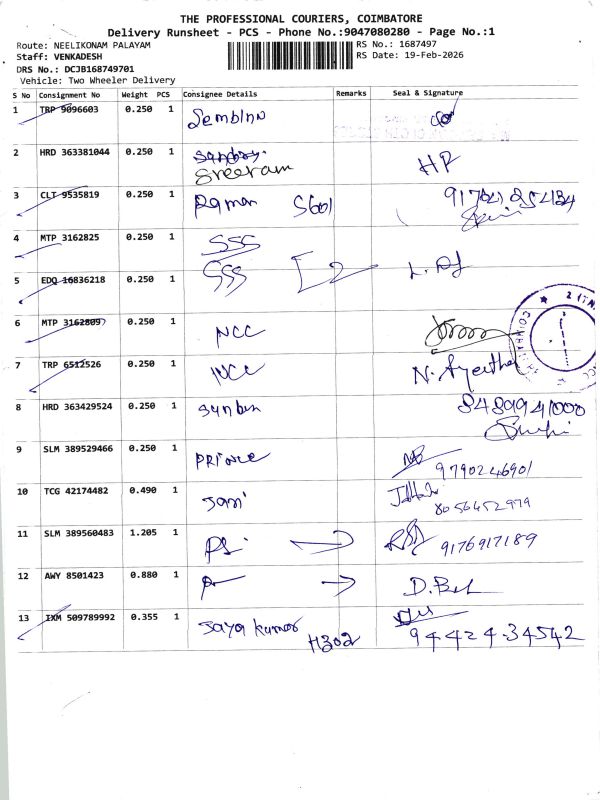 THE PROFESSIONAL COURIERS, COIMBATORE
Delivery Runsheet - PCS - Phone No.:9047080280 - Page No.:1
Route: NEELIKONAM PALAYAM
RS No.: 1687497
Staff: VENKADESH
RS Date: 19-Feb-2026
DRS No.: DCJB168749701
Vehicle: Two Wheeler Delivery
S No Consignment No Weight PCS Consignee Details Remarks Seal & Signature
1 TRP 9096603 0.250 1
2 HRD 363381044 0.250 1 Sreeram HP
3 CLT 9535819 0.250 1 Raman S601
4 MTP 3162825 0.250 1 SSS
5 EDQ 16836218 0.250 1 SSS
6 MTP 3162809 0.250 1 NCC
7 TRP 6512526 0.250 1 NCC
8 HRD 363429524 0.250 1 8489941000
9 SLM 389529466 0.250 1 Prince 9790246901
10 TCG 42174482 0.490 1 Jani 8056452979
11 SLM 389560483 1.205 1 9176917189
12 AWY 8501423 0.880 1
13 IXM 509789992 0.355 1 Jaya kumar H302 9442434542